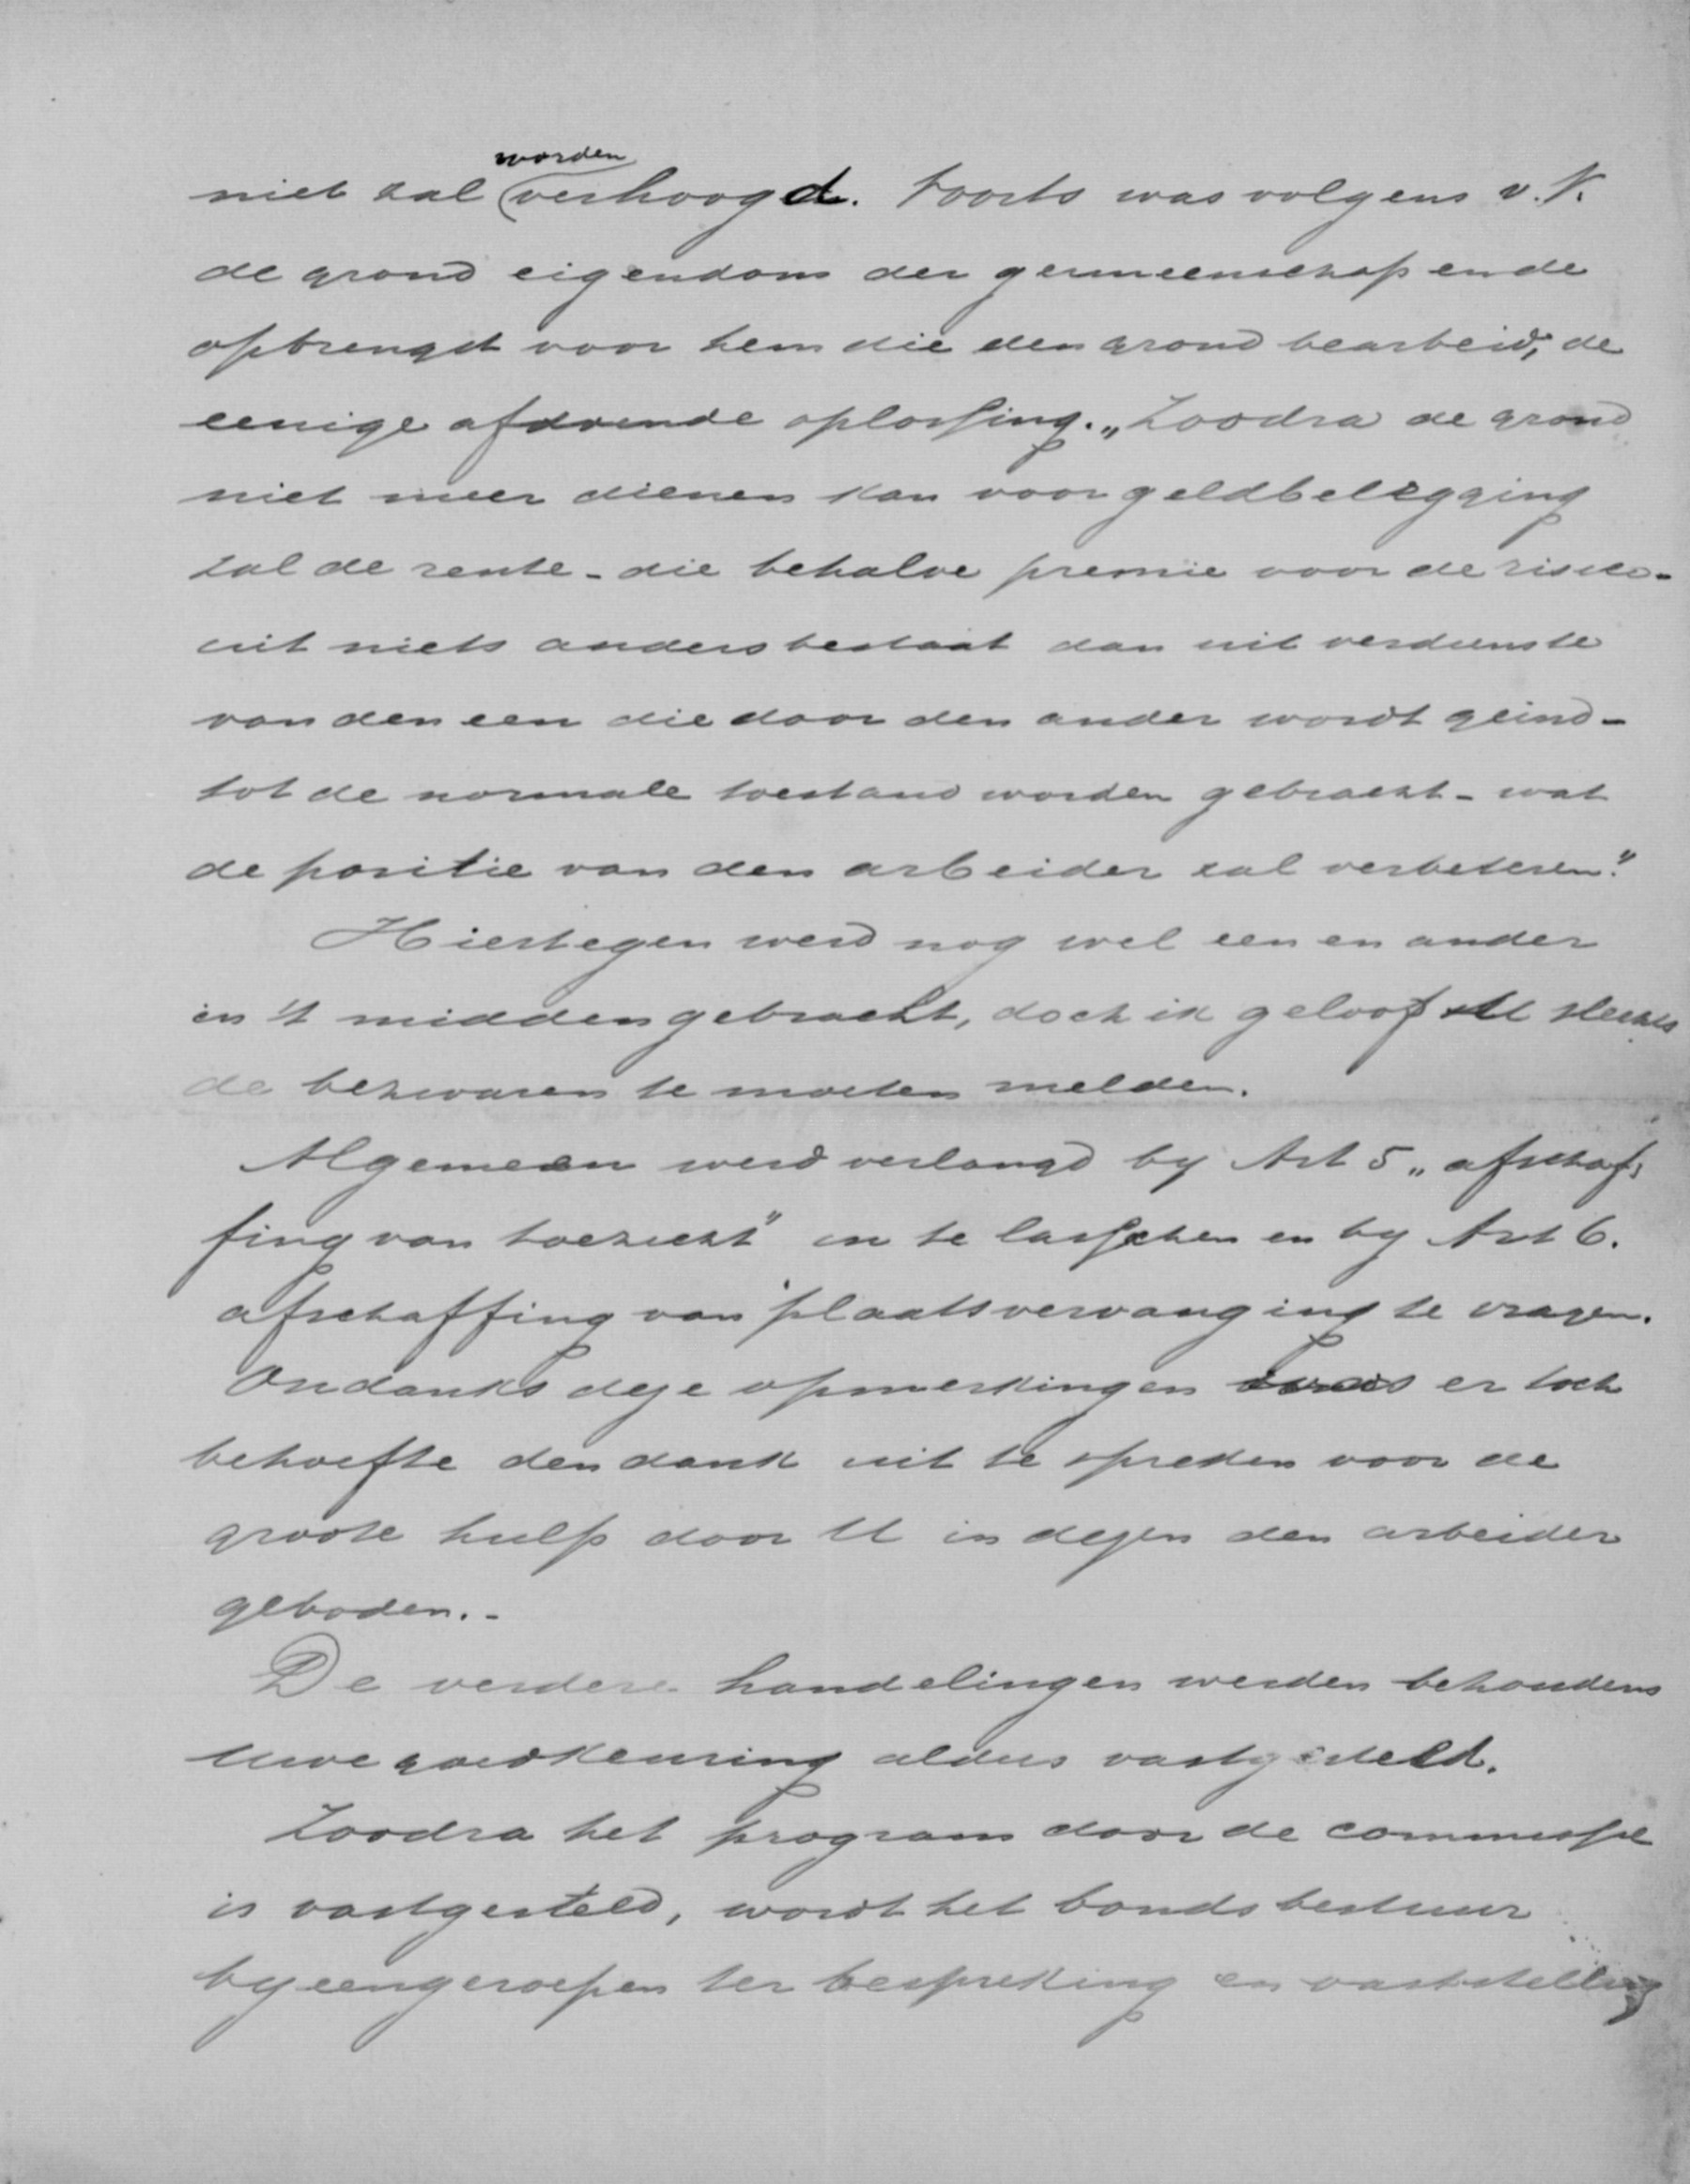 niet zal worden verhoogd. Voorts was volgens v. K.
de grond eigendom der gemeenschap en de
opbrengst voor hem die den grond bearbeid, de
eenige afdoende oplossing. „Zoodra de grond
niet meer dienen kan voor geldbelegging
zal de rente - die behalve premie voor de risico -
uit niets anders bestaat dan uit verdienste
van den een die door den ander wordt geind -
tot de normale toestand worden gebracht - wat
de positie van den arbeider zal verbeteren."
Hiertegen werd nog wel een en ander
in 't midden gebracht, doch ik geloof U slechts
de bezwaren te moeten melden.
Algemeen werd verlangd by Art 5 „afschaf-
fing van toezicht" in te lasschen en by Art 6.
afschaffing van plaatsvervanging te vragen.
Ondanks deze opmerkingen was er toch
behoefte den dank uit te spreken voor de
groote hulp door U in dezen den arbeider
geboden. -
De verdere handelingen werden behoudens
Uwe goedkeuring aldus vastgesteld.
Zoodra het program door de commissie
is vastgesteld, wordt het bondsbestuur
byeengeroepen ter bespreking en vaststelling